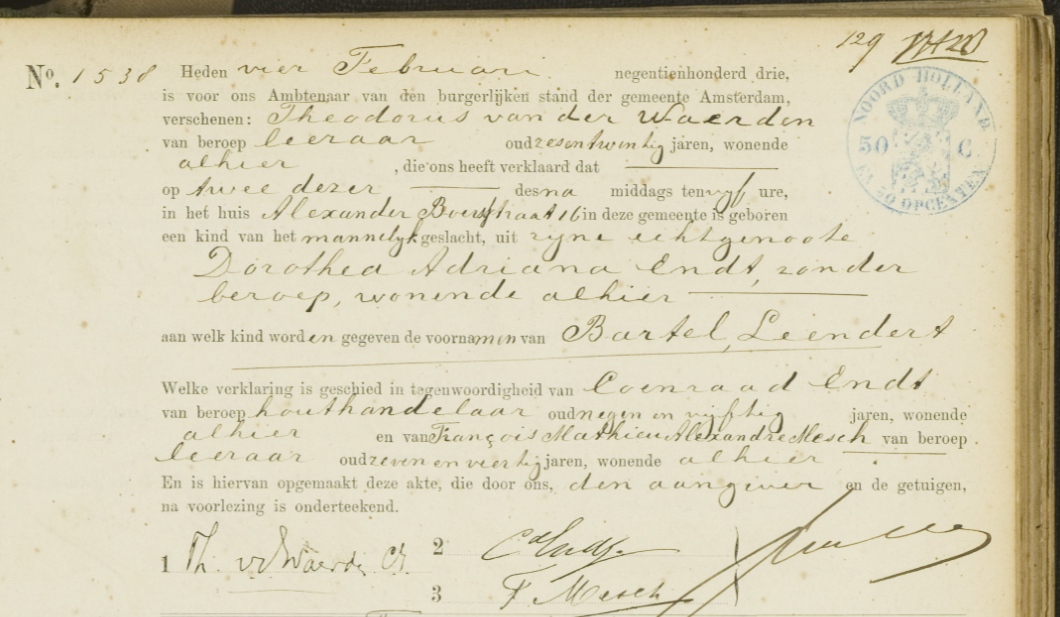 129
No. 1538 Heden vier Februari negentienhonderd drie,
is voor ons Ambtenaar van den burgerlijken stand der gemeente Amsterdam,
verschenen: Theodorus van der Waerden
van beroep leeraar oud zesentwintig jaren, wonende
alhier, die ons heeft verklaard dat
op twee dezer des na middags ten vijf ure,
in het huis Alexander Boersstraat 16 in deze gemeente is geboren
een kind van het mannelijk geslacht, uit zijne echtgenoote
Dorothea Adriana Endt, zonder
beroep, wonende alhier
aan welk kind worden gegeven de voornamen van Bartel, Leendert
Welke verklaring is geschied in tegenwoordigheid van Coenraad Endt
van beroep houthandelaar oud negen en vijftig jaren, wonende
alhier en van François Mathieu Alexandre Mesch van beroep
leeraar oud zeven en veertig jaren, wonende alhier.
En is hiervan opgemaakt deze akte, die door ons, den aangever en de getuigen,
na voorlezing is onderteekend.
1 Th. vd Waerden
2 Cd Endt
3 F Mesch
NOORD HOLLAND
50 C
EN 50 OPCENTEN